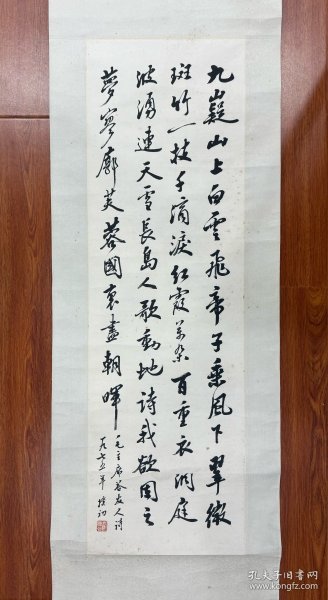 九嶷山上白雲飛帝子乘風下翠微
斑竹一枝千滴淚紅霞萬朵百重衣洞庭
波湧連天雪長島人歌動地詩我欲因之
夢寥廓芙蓉國裏盡朝暉
毛主席答友人詩
一九七五年 樸初
孔夫子旧书网